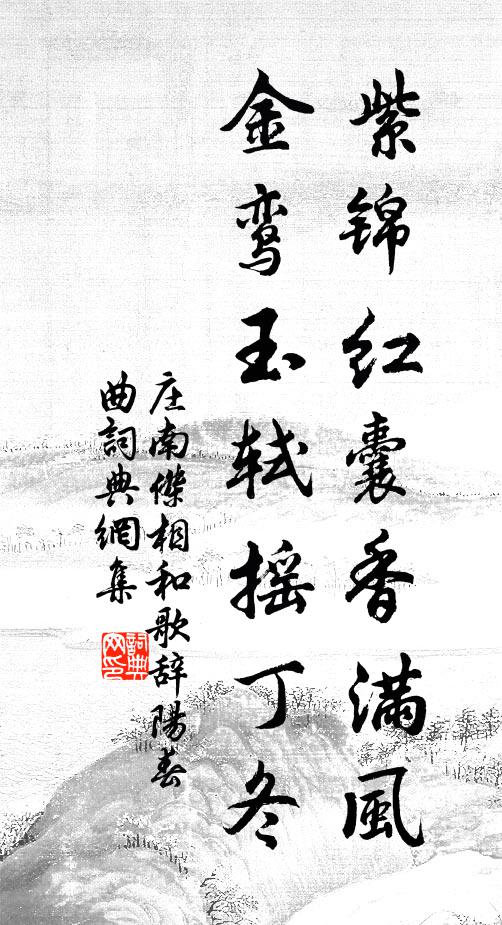 紫锦红囊香满風
金鸾玉轼摇丁冬
庄南傑相和歌辞陽春
曲詞典網集
詞典网印